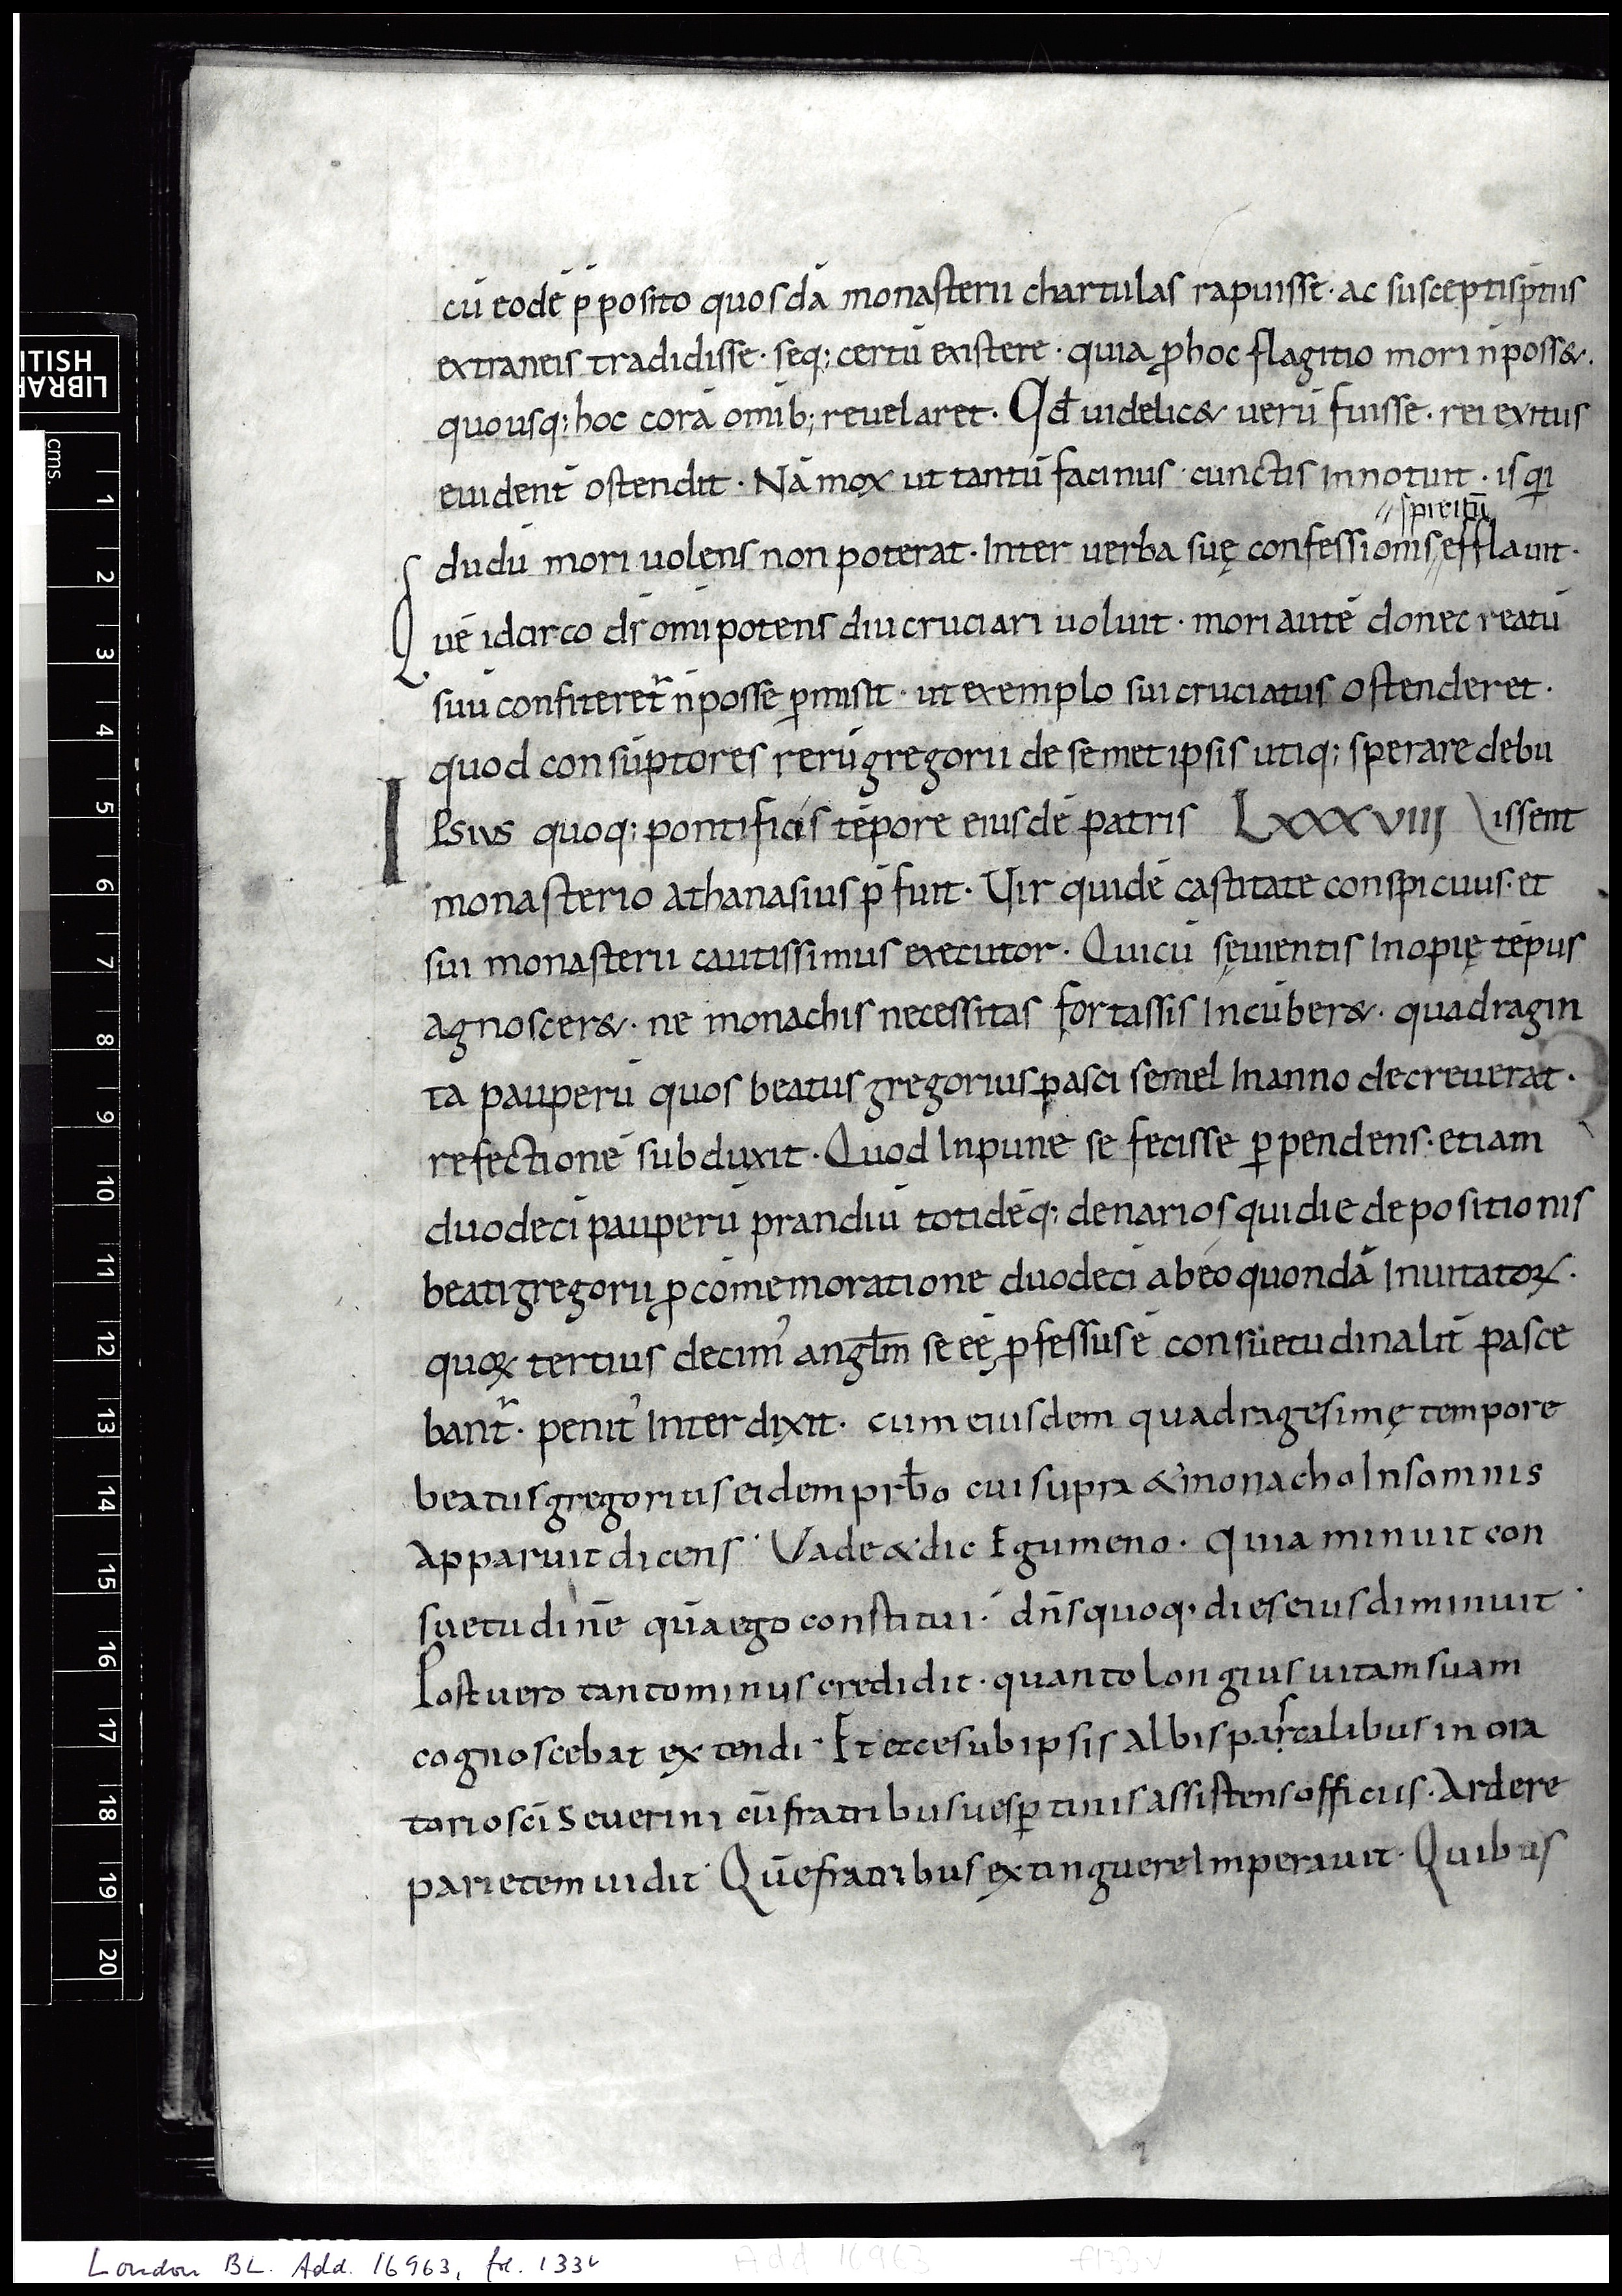 cū eodē p̄posito quosdā monasterii chartulas rapuisse· ac susceptis p̄tiis
extraneis tradidisse· seq; certū existere· quia ꝓ hoc flagitio mori n̄ poss&.
quo usq; hoc corā omib; reuelaret· Qd̄ uidelic& uerū fuisse· rei exitus
euident̄ ostendit· Nā mox ut tantū facinus· cunctis Innotuit· is qi
spiritū
dudū mori uolens non poterat· Inter uerba suę confessionis,, efflauit·
Quē idcirco ds̄ omīpotens diu cruciari uoluit· mori autē donec reatū
suū confiteret᷑ n̄ posse ꝑmisit· ut exemplo sui cruciatus ostenderet·
quod consūptores rerū gregorii de semet ipsis utiq; sperare debu
IPsius quoq; pontificis tēpore eiusdē patris LXXXVIIII issent
monasterio athanasius p̄fuit· Uir quidē castitate conspicuus· et
sui monasterii cautissimus executor· Qui cū sęuientis Inopię tēpus
agnoscer&· ne monachis necessitas fortassis Incūber&· quadragin
ta pauperū quos beatus gregorius pasci semel In anno decreuerat·
refectionē subduxit· Quod Inpune se fecisse ꝑpendens· etiam
duodecī pauperū prandiū totidēq; denarios qui die depositionis
beati gregorii ꝓ cōmemoratione duodecī ab eo quondā Inuitatoꝝ·
quoꝝ tertius decim᾽ angl̄m se eē ꝓfessus ē consuetudinalit̄ pasce
bant᷑· penit᾽ Interdixit· cum eiusdem quadragesimę tempore
beatus gregorius eidem prb̄o cui supra & monacho In somnis
Apparuit dicens· Vade & dic Egumeno· Quia minuit con
suetudinē quā ego constitui· dn̄s quoq; dies eius diminuit·
Post uero tanto minus credidit· quanto longius uitam suam
cognoscebat extendi· Et ecce sub ipsis Albis pascalibus in ora
torio sc̄i Seuerini cū fratribus uesꝑtinis assistens officiis· Ardere
parietem uidit· Quē fratribus extinguere Imperauit· Quibus
BRITISH LIBRARY
cms.
1
2
3
4
5
6
7
8
9
10
11
12
13
14
15
16
17
18
19
20
London BL. Add. 16963, fol. 133v
Add 16963 f133v